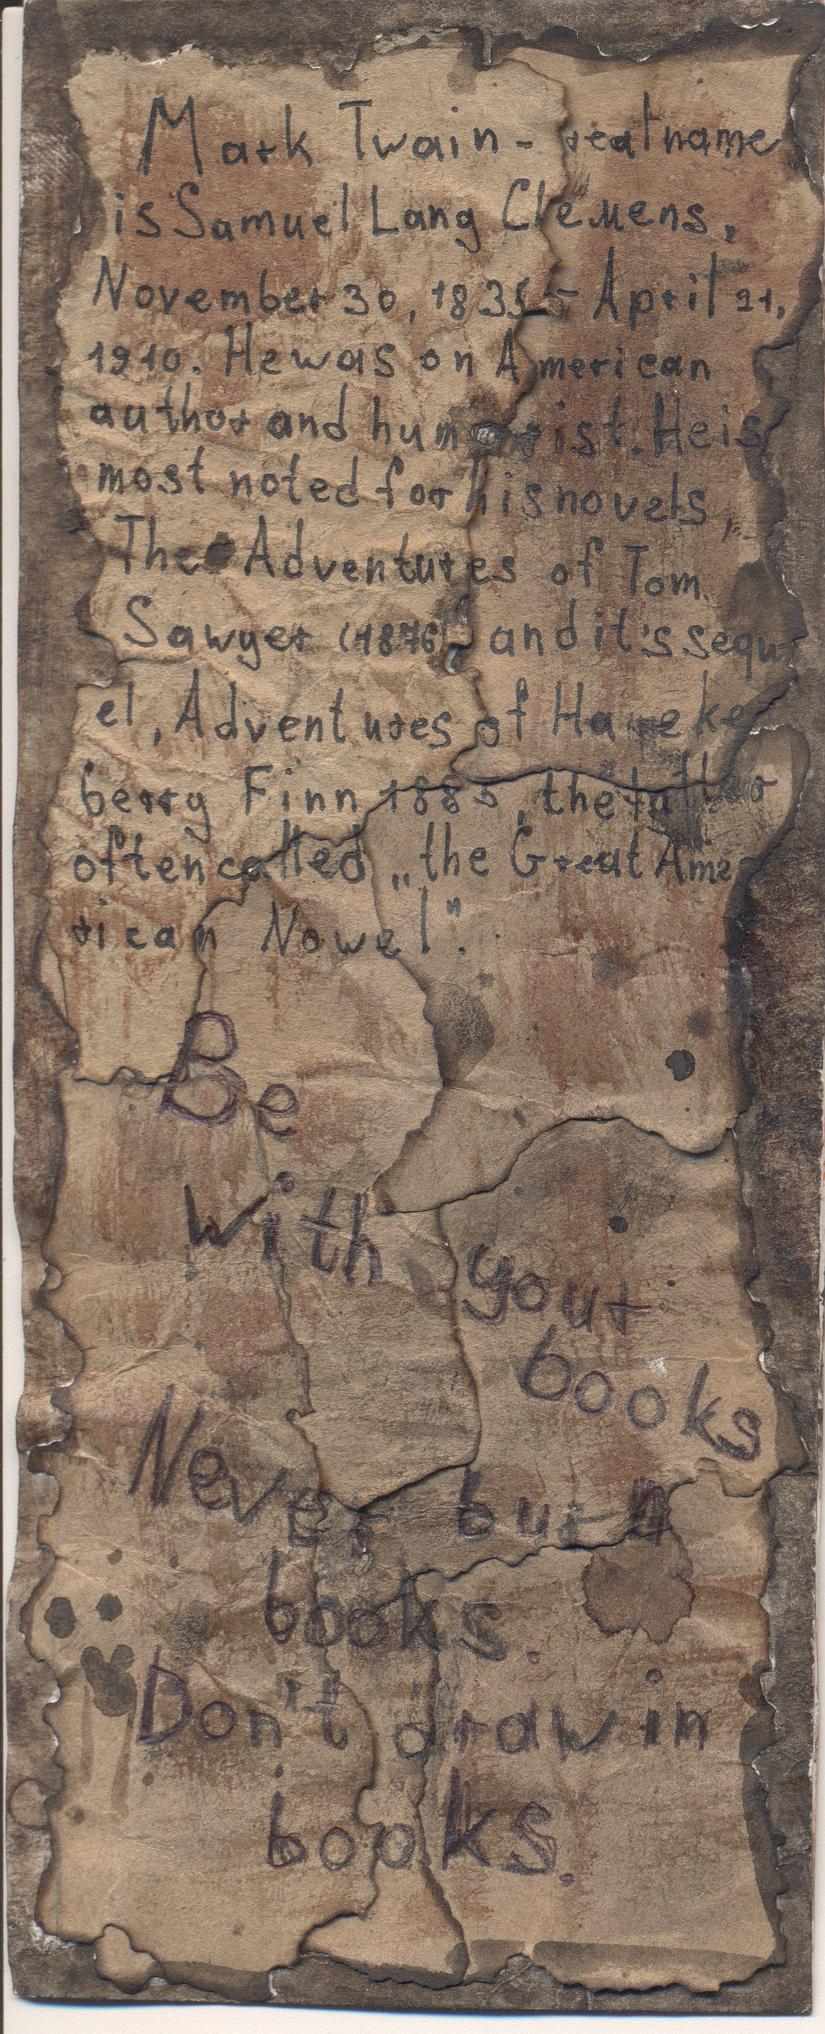 Mark Twain - real name
is Samuel Lang Clemens,
November 30, 1835 - April 21,
1910. He was on American
author and humorist. He is
most noted for his novels,
The Adventures of Tom
Sawyer (1876), and it's sequ
el, Adventures of
berry Finn 1885, the latter
often called „the Great Ame
rican Nowel".
Be
with your
books
Never burn
books.
Don't draw in
books.